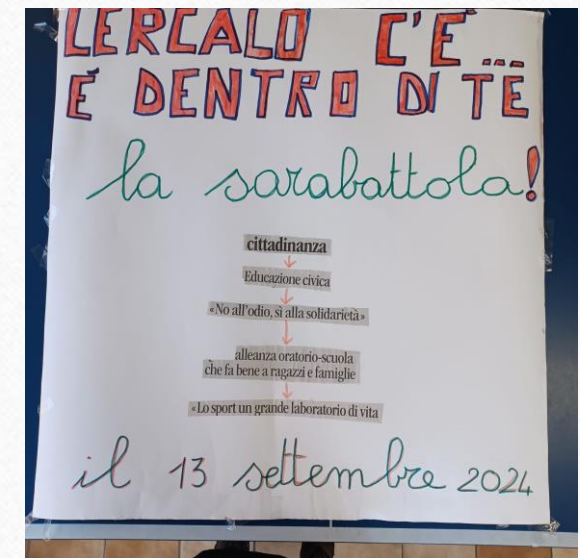 CERCALO C'È...
È DENTRO DI TE
la sarabattola!
cittadinanza
Educazione civica
«No all'odio, sì alla solidarietà»
alleanza oratorio-scuola
che fa bene a ragazzi e famiglie
«Lo sport un grande laboratorio di vita
il 13 settembre 2024